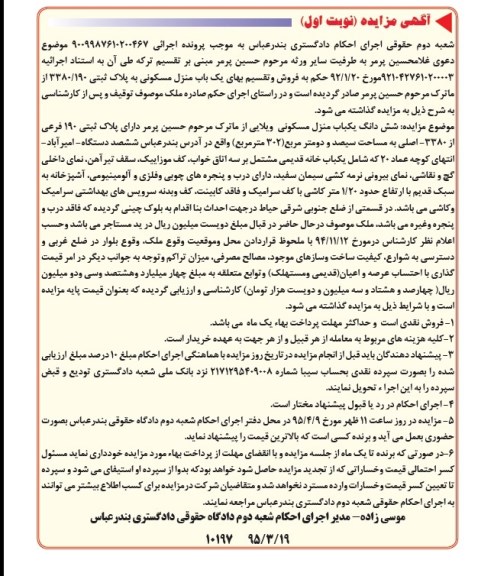 آگهی مزایده (نوبت اول)
شعبه دوم حقوقی اجرای احکام دادگستری بندرعباس به موجب پرونده اجرائی ۹۰۰۹۹۸۷۶۱۰۲۰۰۴۶۷ موضوع
دعوی غلامحسین پرمر به طرفیت سایر ورثه مرحوم حسین پرمر مبنی بر تقسیم ترکه طی آن به استناد اجرائیه
۹۲۱۰۴۲۷۶۱۰۲۰۰۰۰۳مورخ ۹۲/۱/۲۰ حکم به فروش وتقسیم بهای یک باب منزل مسکونی به پلاک ثبتی ۳۳۸۰/۱۹۰ از
ماترک مرحوم حسین پرمر صادر گردیده است و در راستای اجرای حکم صادره ملک موصوف توقیف و پس از کارشناسی
به شرح ذیل به مزایده گذاشته می شود.
موضوع مزایده: شش دانگ یکباب منزل مسکونی ویلایی از ماترک مرحوم حسین پرمر دارای پلاک ثبتی ۱۹۰ فرعی
از ۳۳۸۰- اصلی به مساحت سیصد و دومتر مربع(۳۰۲ مترمربع) واقع در آدرس بندرعباس ششصد دستگاه-امیرآباد-
انتهای کوچه عماد ۲۰ که شامل یکباب خانه قدیمی مشتمل بر سه اتاق خواب، کف موزاییک، سقف تیرآهن، نمای داخلی
گچ و نقاشی، نمای بیرونی نرمه کشی سیمان سفید، دارای درب و پنجره های چوبی وفلزی و آلومینیومی، آشپزخانه به
سبک قدیم با ارتفاع حدود ۱/۲۰ متر کاشی با کف سرامیک و فاقد کابینت، کف وبدنه سرویس های بهداشتی سرامیک
وکاشی می باشد. در قسمتی از ضلع جنوبی شرقی حیاط درجهت احداث بنا اقدام به بلوک چینی گردیده که فاقد درب و
پنجره وغیره می باشد، ملک موصوف درحال حاضر در قبال مبلغ دویست میلیون ریال در ید مستاجر می باشد وحسب
اعلام نظر کارشناس درمورخ ۹۴/۱۱/۱۲ با ملحوظ قراردادن محل وموقعیت وقوع ملک، وقوع بلوار در ضلع غربی و
دسترسی به شوارع، کیفیت ساخت وسازهای موجود، مصالح مصرفی، میزان تراکم وتوجه به جوانب دیگر در امر قیمت
گذاری با احتساب عرصه و اعیان(قدیمی ومستهلک) و توابع متعلقه به مبلغ چهار میلیارد وهشتصد وسی ودو میلیون
ریال( چهارصد و هشتاد و سه میلیون و دویست هزار تومان) کارشناسی و ارزیابی گردیده که بعنوان قیمت پایه مزایده
است و با شرایط ذیل به مزایده گذاشته می شود.
۱-فروش نقدی است و حداکثر مهلت پرداخت بهاء یک ماه می باشد.
۲-کلیه هزینه های مربوط به معامله از هر قبیل و از هر جهت به عهده خریدار است.
۳- پیشنهاد دهندگان باید قبل از انجام مزایده در تاریخ روز مزایده با هماهنگی اجرای احکام مبلغ ۱۰ درصد مبلغ ارزیابی
شده را بصورت سپرده نقدی بحساب سیبا شماره ۲۱۷۱۲۹۵۴۰۹۰۰۸ نزد بانک ملی شعبه دادگستری تودیع و قبض
سپرده را به این اجراء تحویل نمایند.
۴- اجرای احکام در رد یا قبول پیشنهاد مختار است.
۵- مزایده در روز ساعت ۱۱ ظهر مورخ ۹۵/۴/۹ در محل دفتر اجرای احکام شعبه دوم دادگاه حقوقی بندرعباس بصورت
حضوری بعمل می آید و برنده کسی است که بالاترین قیمت را پیشنهاد نماید.
۶-در صورتی که برنده تا یک ماه از جلسه مزایده و با انقضای مهلت از پرداخت بهاء مورد مزایده خودداری نماید مسئول
کسر احتمالی قیمت وخساراتی که از تجدید مزایده حاصل شود خواهد بودکه بدوا از سپرده او استیفای می شود و سپرده
تا تعیین کسر قیمت و خسارات وارده مسترد نخواهد شد و متقاضیان شرکت درمزایده برای کسب اطلاع بیشتر می توانند
به اجرای احکام حقوقی شعبه دوم دادگستری بندرعباس مراجعه نمایند.
موسی زاده- مدیر اجرای احکام شعبه دوم دادگاه حقوقی دادگستری بندرعباس
۹۵/۳/۱۹ ۱۰۱۹۷